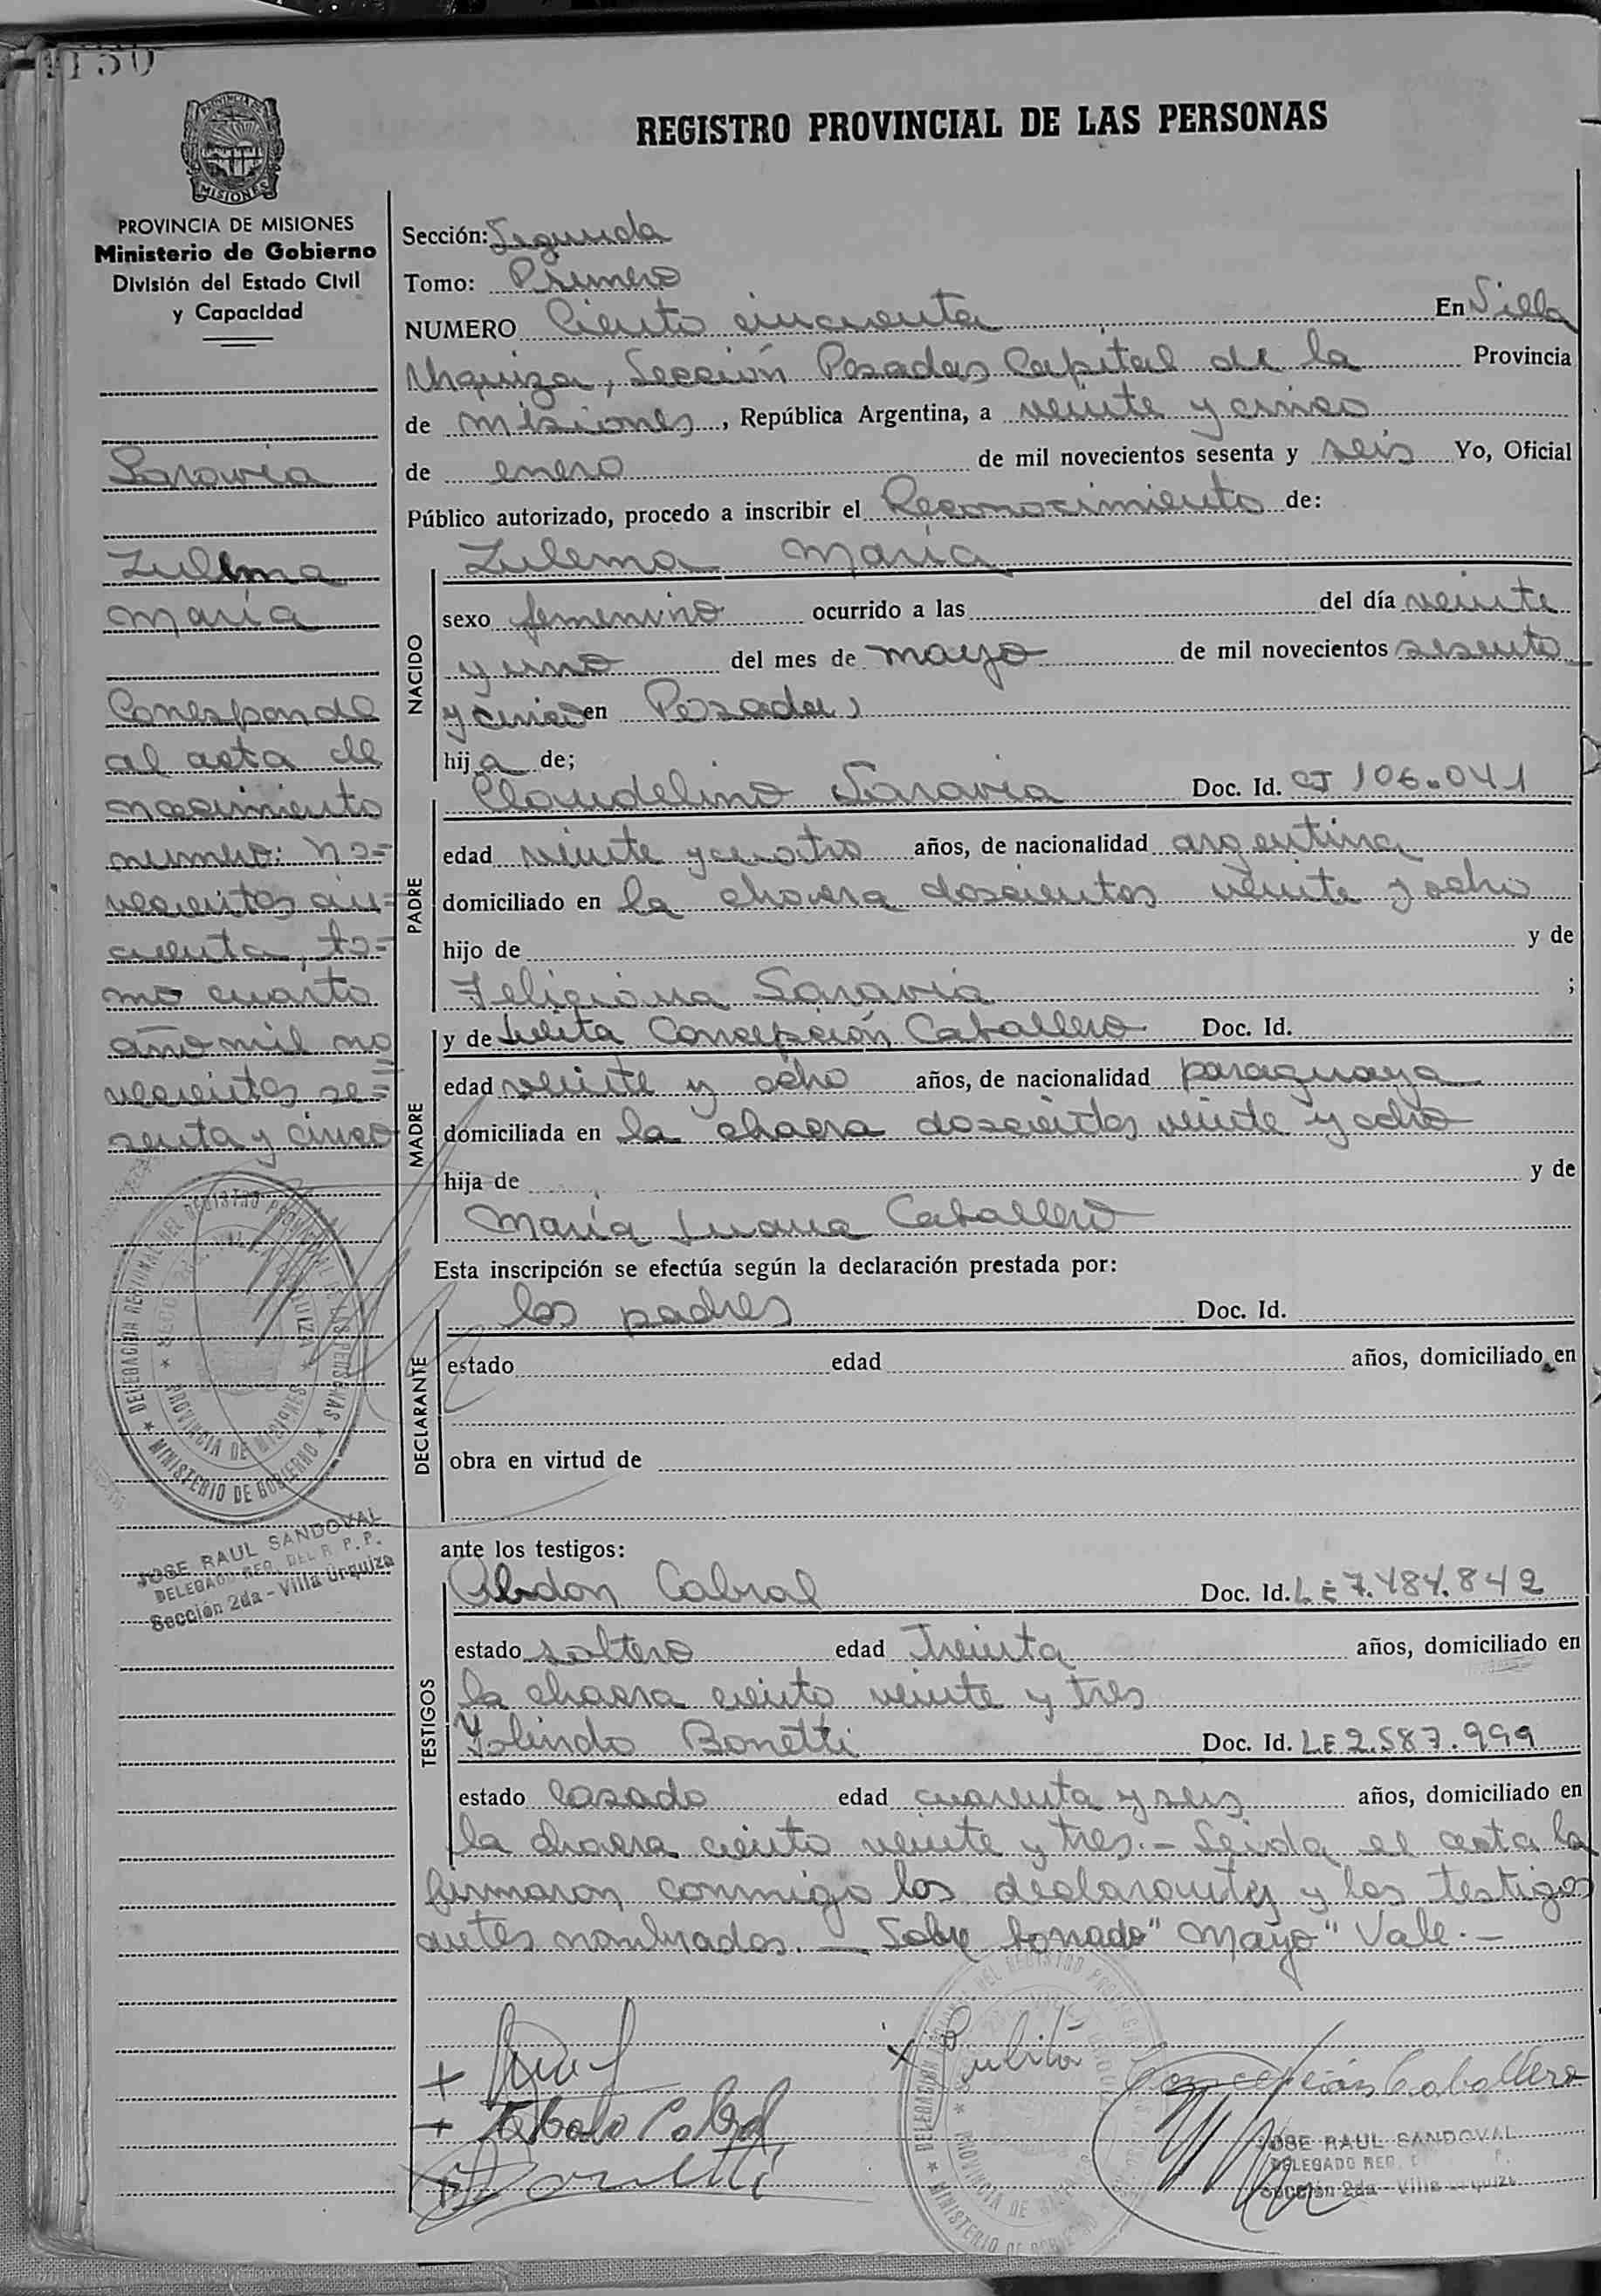 150
REGISTRO PROVINCIAL DE LAS PERSONAS
MISIONES
PROVINCIA DE MISIONES
Ministerio de Gobierno
División del Estado Civil
y Capacidad
Saravia
Zulema
María
Corresponde
al acta de
nacimiento
numero: no=
vecientos cin=
cuenta, to=
mo cuarto
año mil no
vecientos se=
senta y cinco
DELEGACION REGIONAL DEL REGISTRO PROVINCIAL DE LAS PERSONAS
PROVINCIA DE MISIONES
MINISTERIO DE GOBIERNO
JOSE RAUL SANDOVAL
DELEGADO REG. DEL R. P. P.
Sección 2da - Villa Urquiza
Sección: Segunda
Tomo: Primero
NUMERO Ciento cincuenta En Villa
Urquiza, Sección Posadas Capital de la Provincia
de Misiones, República Argentina, a veinte y cinco
de enero de mil novecientos sesenta y seis Yo, Oficial
Público autorizado, procedo a inscribir el Reconocimiento de:
NACIDO
Zulema María
sexo femenino ocurrido a las del día veinte
y uno del mes de mayo de mil novecientos sesenta
y cinco en Posadas
hija de;
PADRE
Claudelino Saravia Doc. Id. CI 106.041
edad veinte y cuatro años, de nacionalidad argentina
domiciliado en la chacra doscientos veinte y ocho
hijo de y de
Feliciana Saravia ;
MADRE
y de Julita Concepción Caballero Doc. Id.
edad veinte y ocho años, de nacionalidad paraguaya
domiciliada en la chacra doscientos veinte y ocho
hija de y de
María Juana Caballero
Esta inscripción se efectúa según la declaración prestada por:
DECLARANTE
los padres Doc. Id.
estado edad años, domiciliado en
obra en virtud de
ante los testigos:
TESTIGOS
Abdon Cabral Doc. Id. LE 7.484.842
estado soltero edad Treinta años, domiciliado en
la chacra ciento veinte y tres
Yolindo Bonetti Doc. Id. LE 2.587.999
estado casado edad cuarenta y seis años, domiciliado en
la chacra ciento veinte y tres.- Leida el acta la
firmaron conmigo los declarantes y los testigos
antes nombrados. — Sobre borrado "Mayo" Vale.-
Concepción Caballero
Cabral
Bonetti
JOSE RAUL SANDOVAL
DELEGADO REG.
Sección 2da - Villa Urquiza